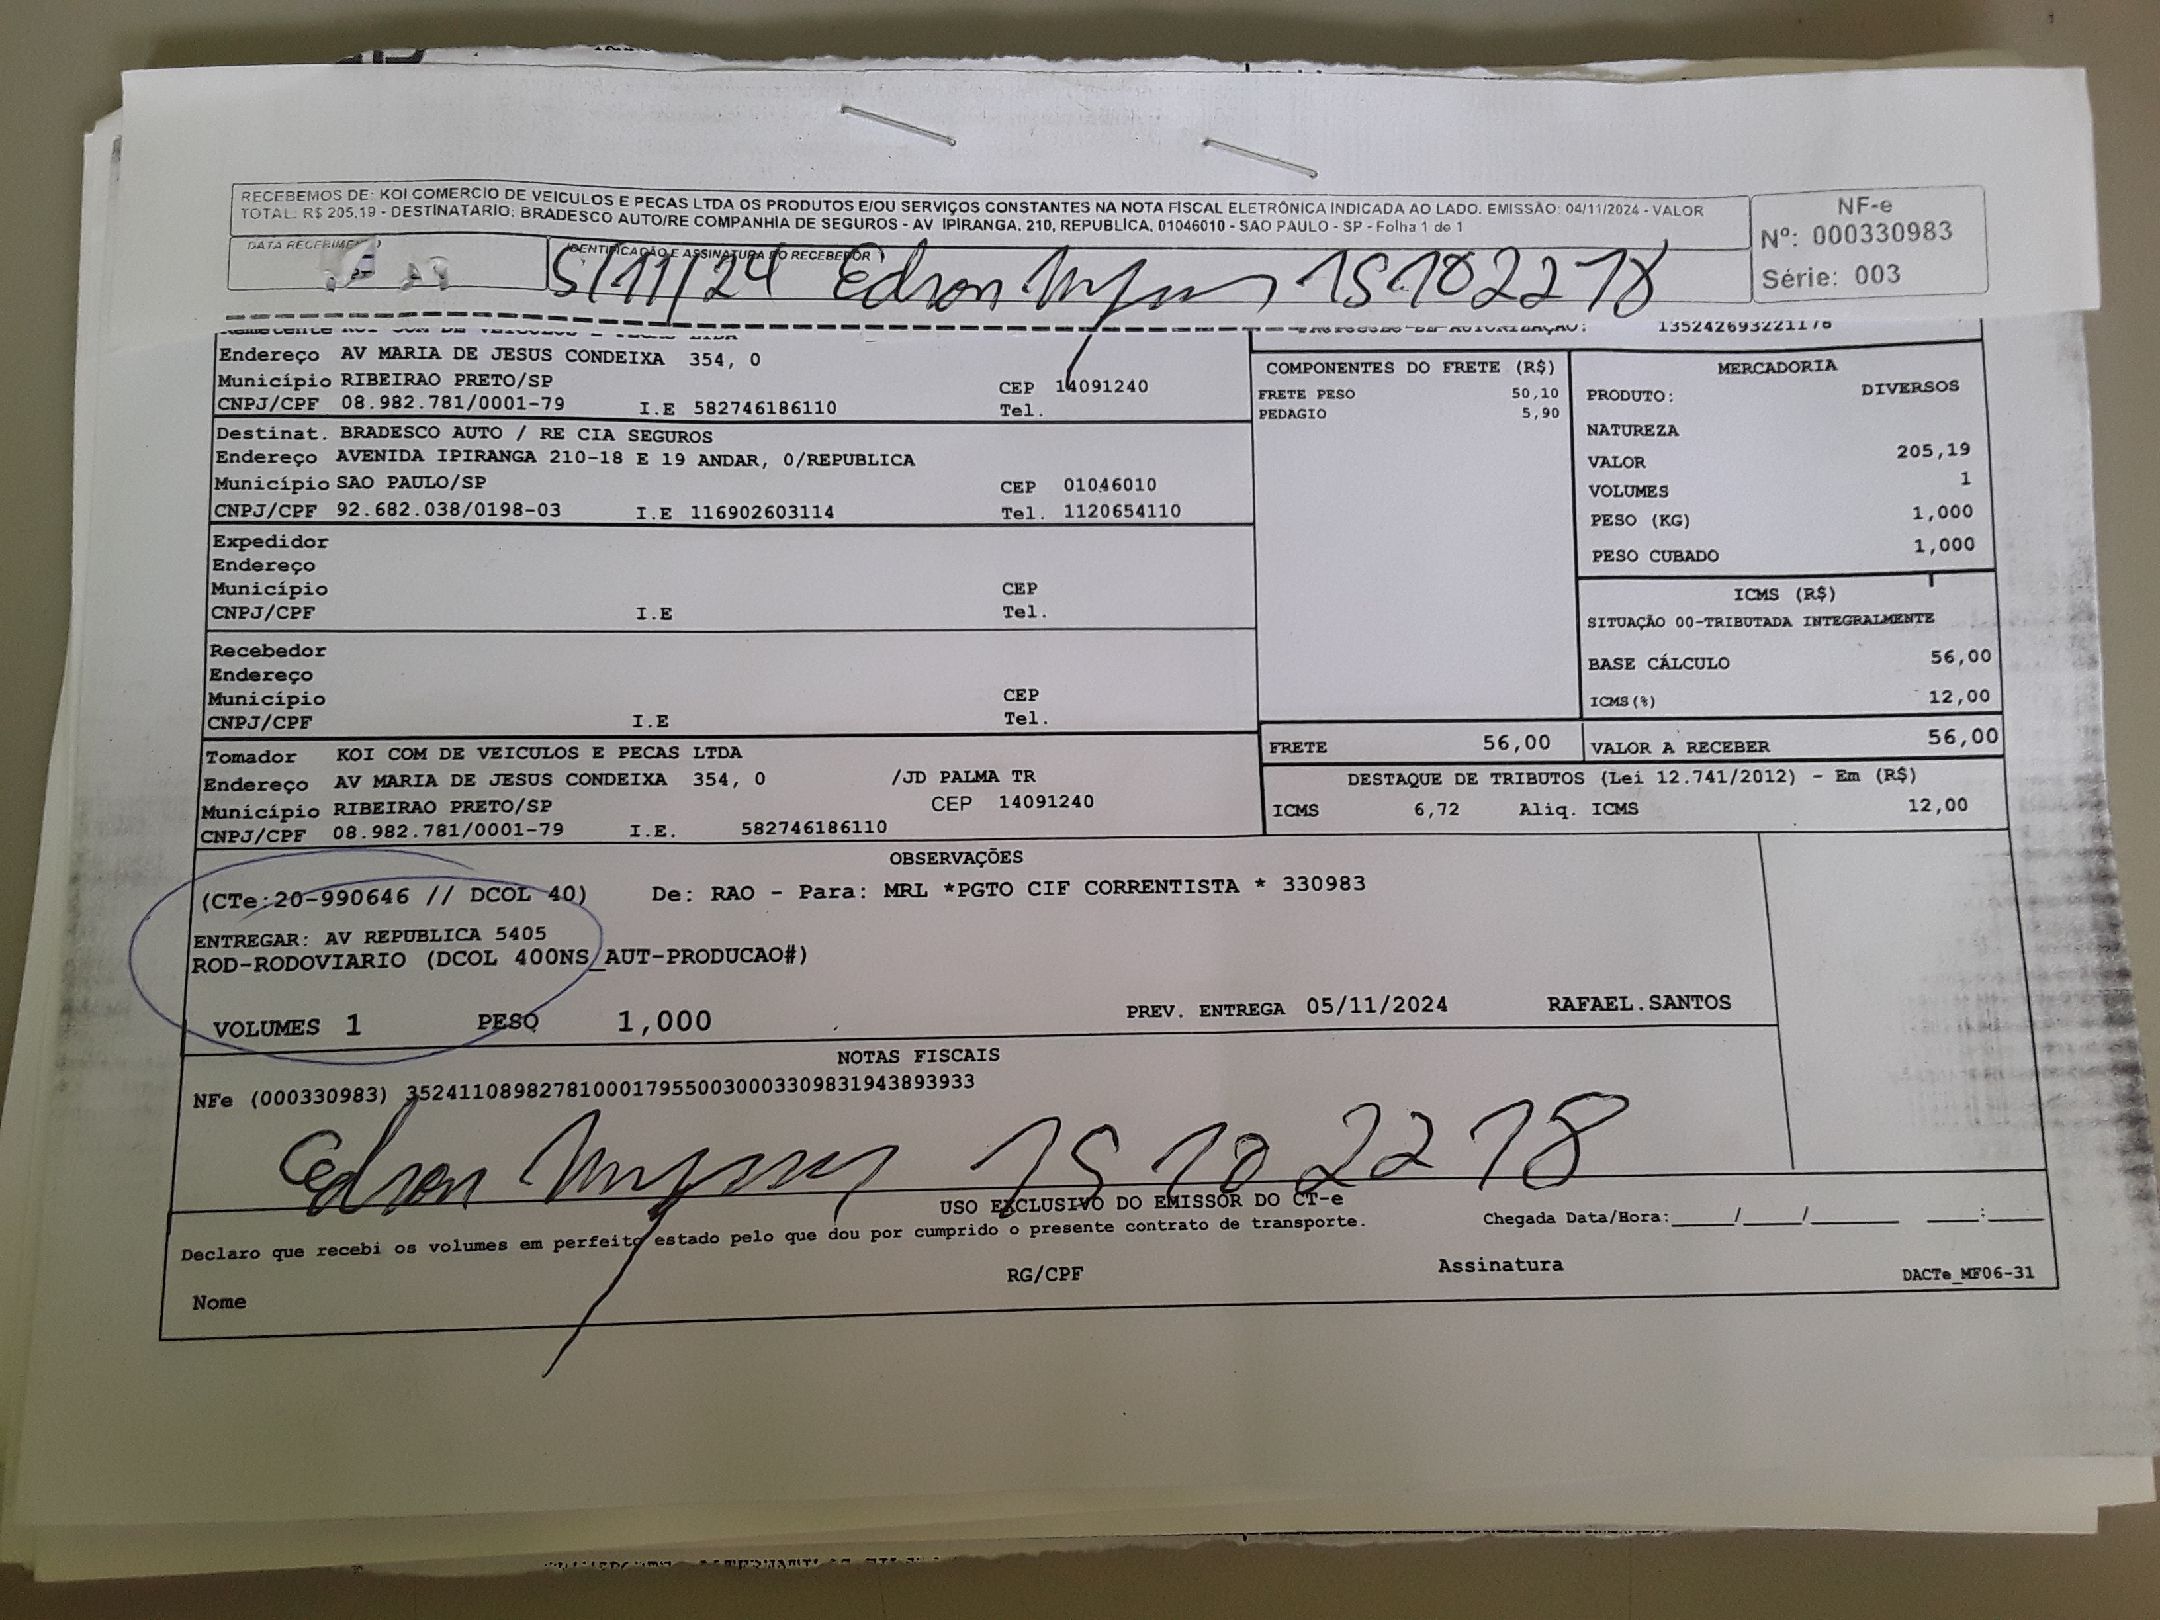 RECEBEMOS DE: KOI COMERCIO DE VEICULOS E PECAS LTDA OS PRODUTOS E/OU SERVIÇOS CONSTANTES NA NOTA FISCAL ELETRÔNICA INDICADA AO LADO. EMISSÃO: 04/11/2024 - VALOR
TOTAL: R$ 205,19 - DESTINATARIO: BRADESCO AUTO/RE COMPANHIA DE SEGUROS - AV IPIRANGA, 210, REPUBLICA, 01046010 - SAO PAULO - SP - Folha 1 de 1
NF-e
Nº: 000330983
Série: 003
DATA RECEBIMENTO
IDENTIFICAÇÃO E ASSINATURA DO RECEBEDOR
5/11/24 Edson 15102278
Remetente KOI COM DE VEICULOS E PECAS LTDA
PROTOCOLO DE AUTORIZAÇÃO: 135242693221176
Endereço AV MARIA DE JESUS CONDEIXA 354, 0
Município RIBEIRAO PRETO/SP CEP 14091240
CNPJ/CPF 08.982.781/0001-79 I.E 582746186110 Tel.
Destinat. BRADESCO AUTO / RE CIA SEGUROS
Endereço AVENIDA IPIRANGA 210-18 E 19 ANDAR, 0/REPUBLICA
Município SAO PAULO/SP CEP 01046010
CNPJ/CPF 92.682.038/0198-03 I.E 116902603114 Tel. 1120654110
Expedidor
Endereço
Município CEP
CNPJ/CPF I.E Tel.
Recebedor
Endereço
Município CEP
CNPJ/CPF I.E Tel.
Tomador KOI COM DE VEICULOS E PECAS LTDA
Endereço AV MARIA DE JESUS CONDEIXA 354, 0 /JD PALMA TR
Município RIBEIRAO PRETO/SP CEP 14091240
CNPJ/CPF 08.982.781/0001-79 I.E. 582746186110
COMPONENTES DO FRETE (R$)
FRETE PESO 50,10
PEDAGIO 5,90
MERCADORIA
PRODUTO: DIVERSOS
NATUREZA
VALOR 205,19
VOLUMES 1
PESO (KG) 1,000
PESO CUBADO 1,000
ICMS (R$)
SITUAÇÃO 00-TRIBUTADA INTEGRALMENTE
BASE CÁLCULO 56,00
ICMS(%) 12,00
FRETE 56,00 VALOR A RECEBER 56,00
DESTAQUE DE TRIBUTOS (Lei 12.741/2012) - Em (R$)
ICMS 6,72 Aliq. ICMS 12,00
OBSERVAÇÕES
(CTe:20-990646 // DCOL 40) De: RAO - Para: MRL *PGTO CIF CORRENTISTA * 330983
ENTREGAR: AV REPUBLICA 5405
ROD-RODOVIARIO (DCOL 400NS_AUT-PRODUCAO#)
VOLUMES 1 PESO 1,000 PREV. ENTREGA 05/11/2024 RAFAEL.SANTOS
NOTAS FISCAIS
NFe (000330983) 35241108982781000179550030003309831943893933
Edson 15102278
USO EXCLUSIVO DO EMISSOR DO CT-e
Declaro que recebi os volumes em perfeito estado pelo que dou por cumprido o presente contrato de transporte. Chegada Data/Hora:____/____/______ ____:____
Nome RG/CPF Assinatura DACTe_MF06-31